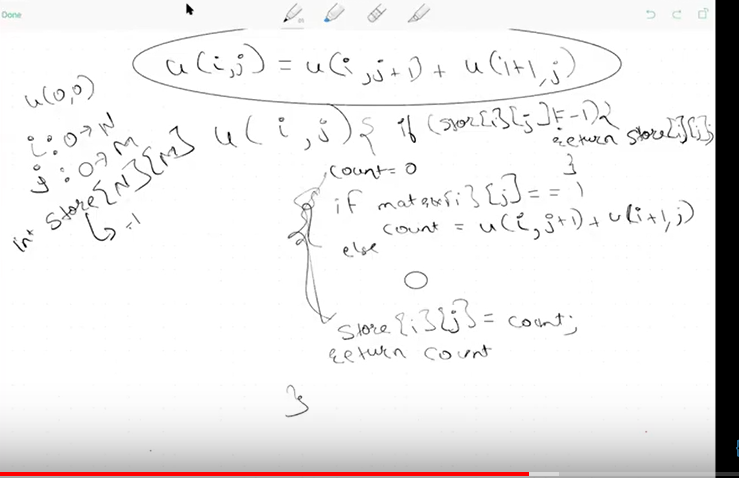 Done
u(i,j) = u(i,j+1) + u(i+1,j)
u(0,0)
i: 0→N
j: 0→M
int store[N][M]
↳ -1
u(i,j){ if (store[i][j]!=-1){
return store[i][j];
}
count=0
if matrix[i][j]==1
count = u(i,j+1)+u(i+1,j)
else
0
store[i][j] = count;
return count
}